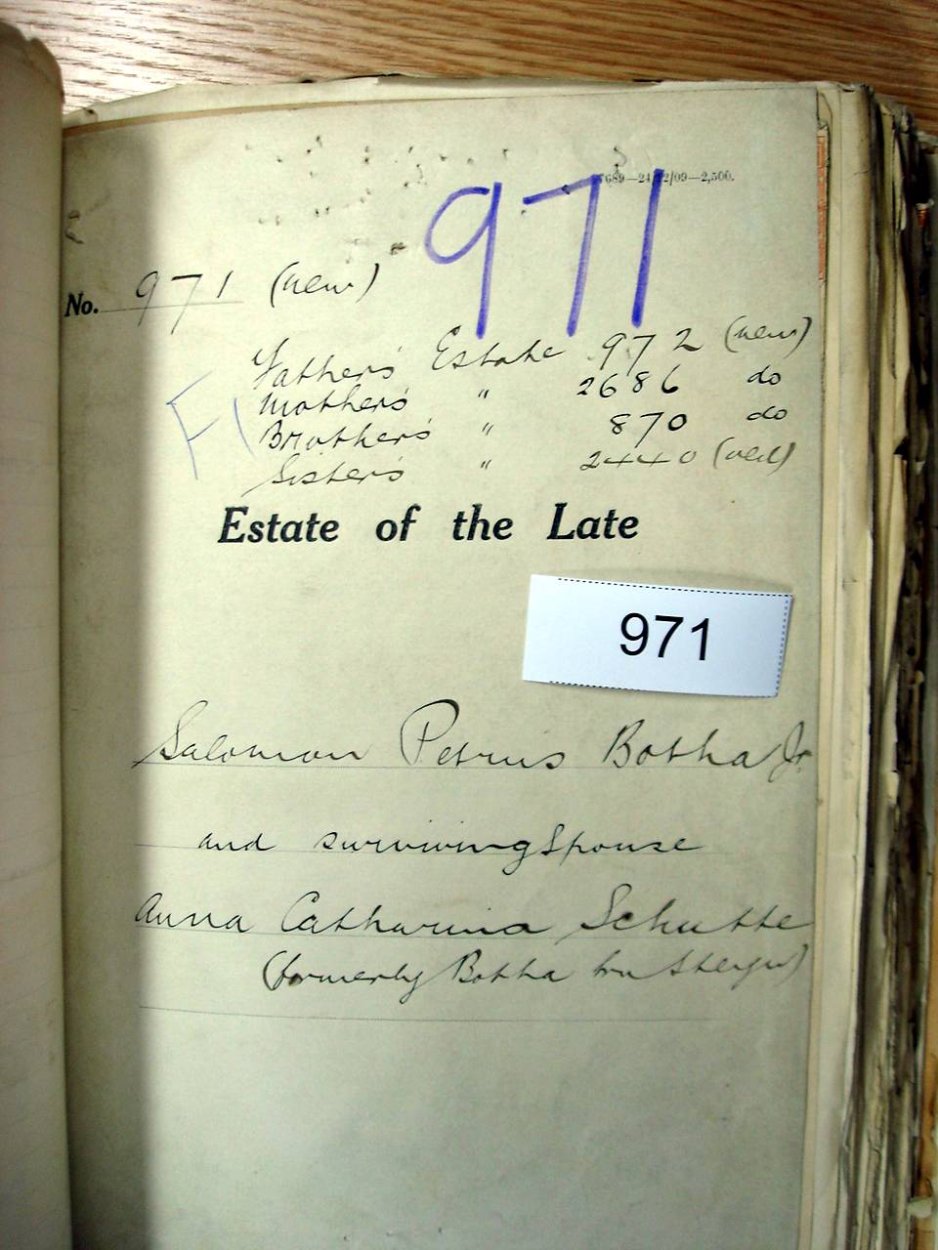 971
689—24/12/09—2,500.
No. 971 (new)
Fathers' Estate 972 (new)
Mothers' " 2686 do
Brothers' " 870 do
Sisters' " 2440
Estate of the Late
971
Salomon Petrus Botha Jr.
and surviving Spouse
Anna Catharina Schutte
(formerly Botha